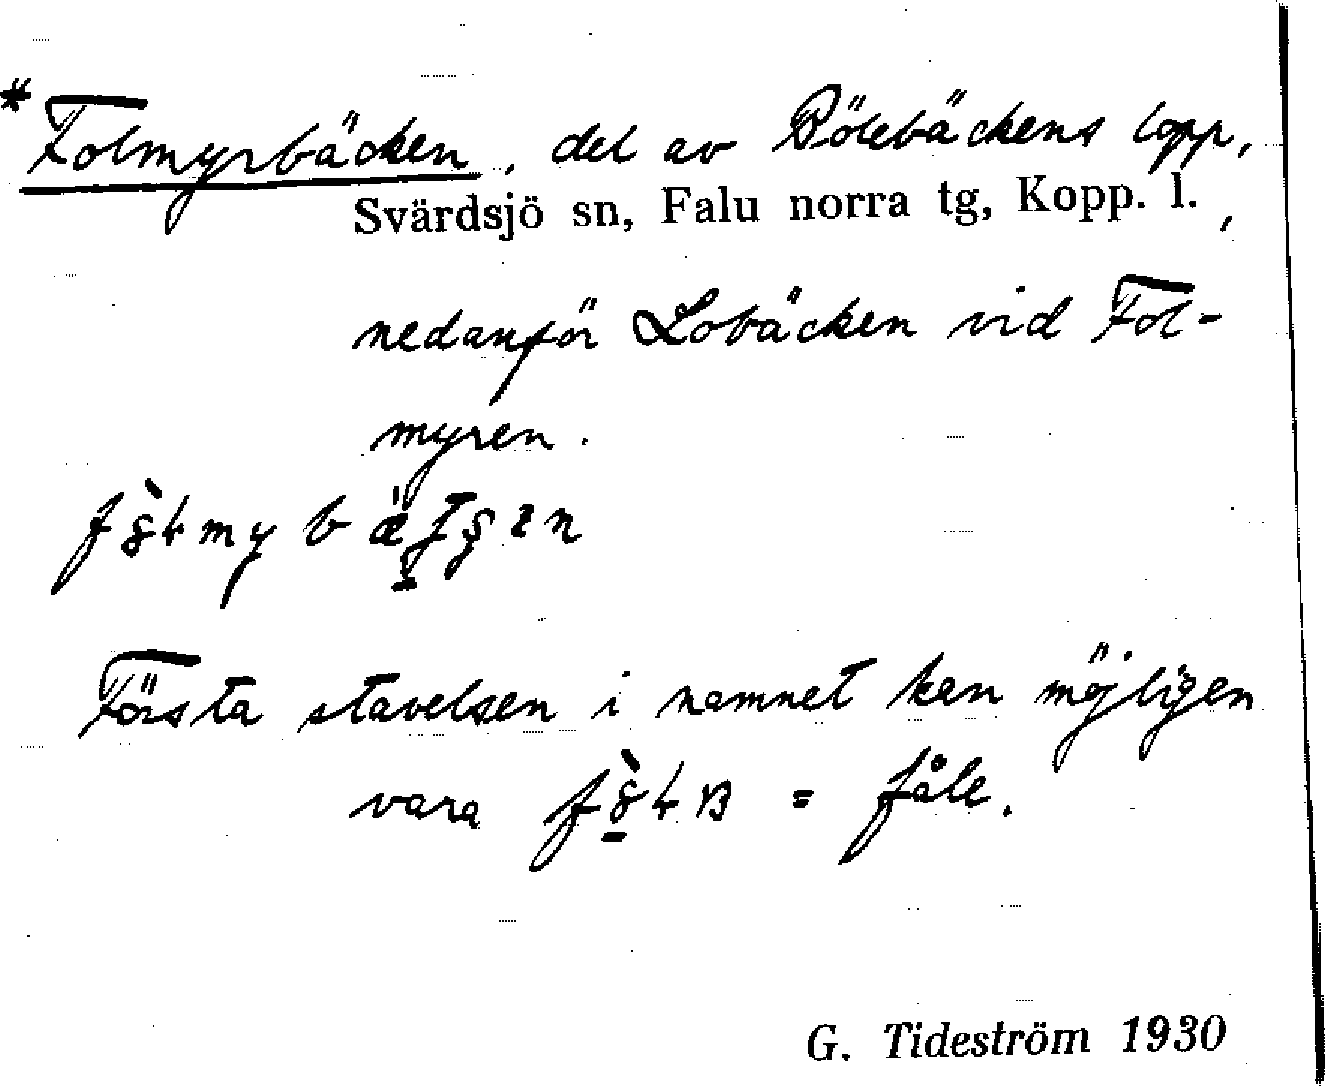 * Folmyrbäcken, del av Bölebäckens lopp,
Svärdsjö sn, Falu norra tg, Kopp. l.,
nedanför Lobäcken vid Fol-
myren.
Första stavelsen i namnet kan möjligen
vara = fåle.
G. Tideström 1930